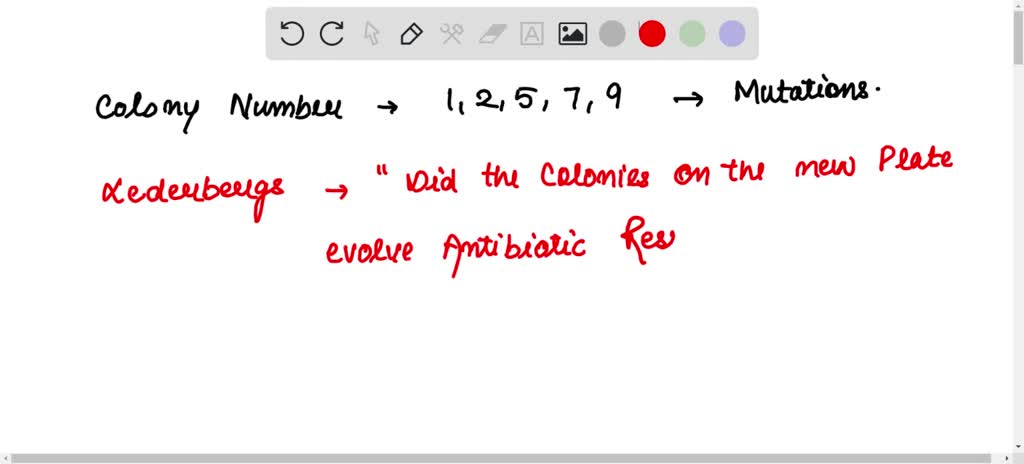 Colony Number → 1, 2, 5, 7, 9 → Mutations.
Lederbergs → " Did the Colonies on the new Plate
evolve Antibiotic Res